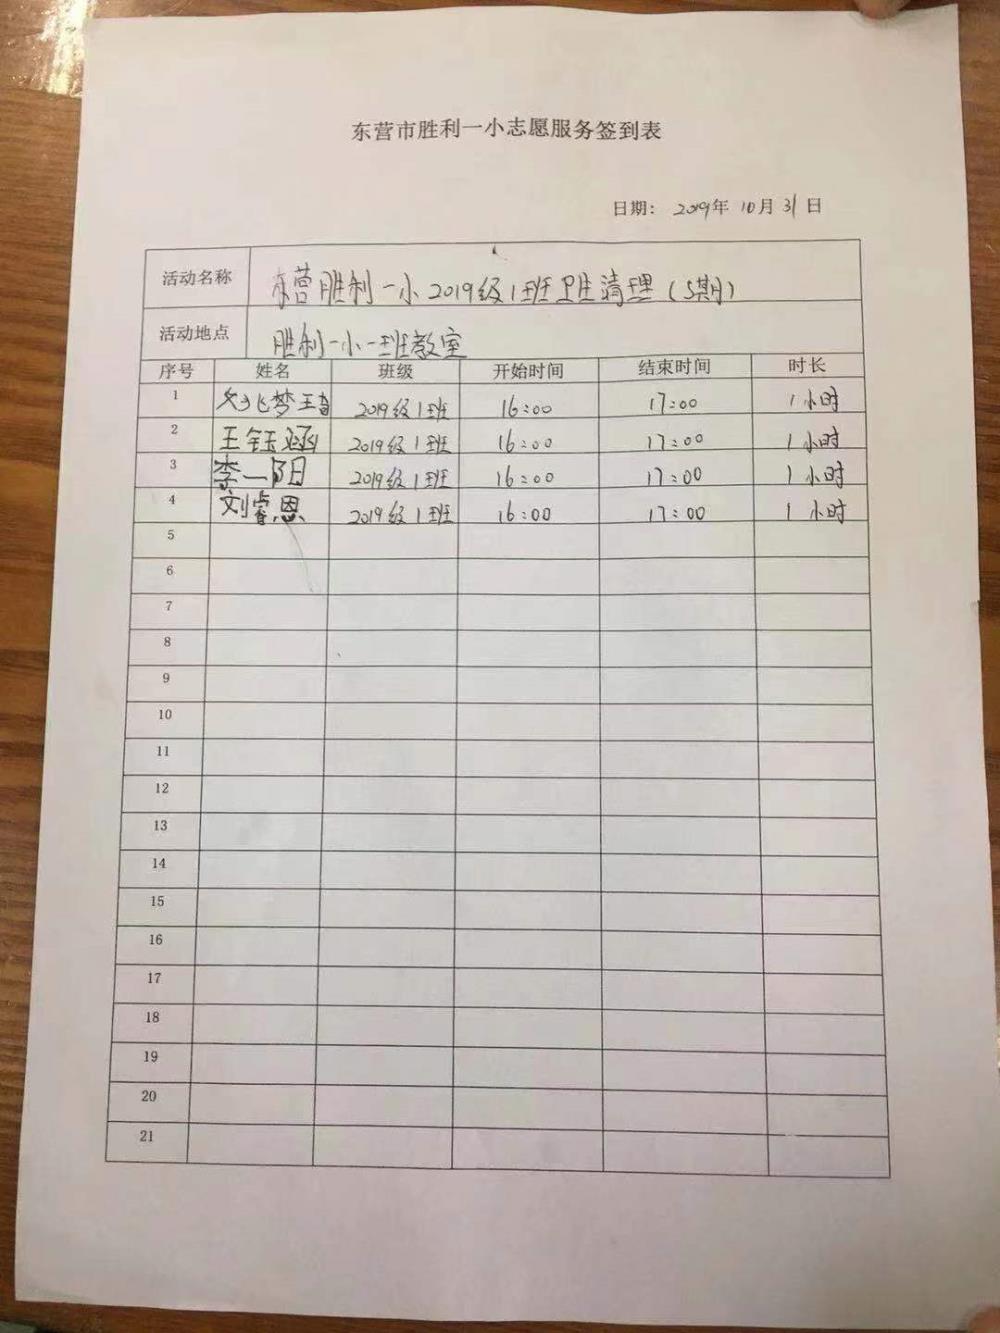 东营市胜利一小志愿服务签到表
日期： 2019年 10月 31日
活动名称 东营胜利一小2019级1班卫生清理（5期）
活动地点 胜利一小一班教室
序号 姓名 班级 开始时间 结束时间 时长
1 梦 2019级1班 16:00 17:00 1小时
2 王钰涵 2019级1班 16:00 17:00 1小时
3 李一阳 2019级1班 16:00 17:00 1小时
4 刘睿恩 2019级1班 16:00 17:00 1小时
5
6
7
8
9
10
11
12
13
14
15
16
17
18
19
20
21